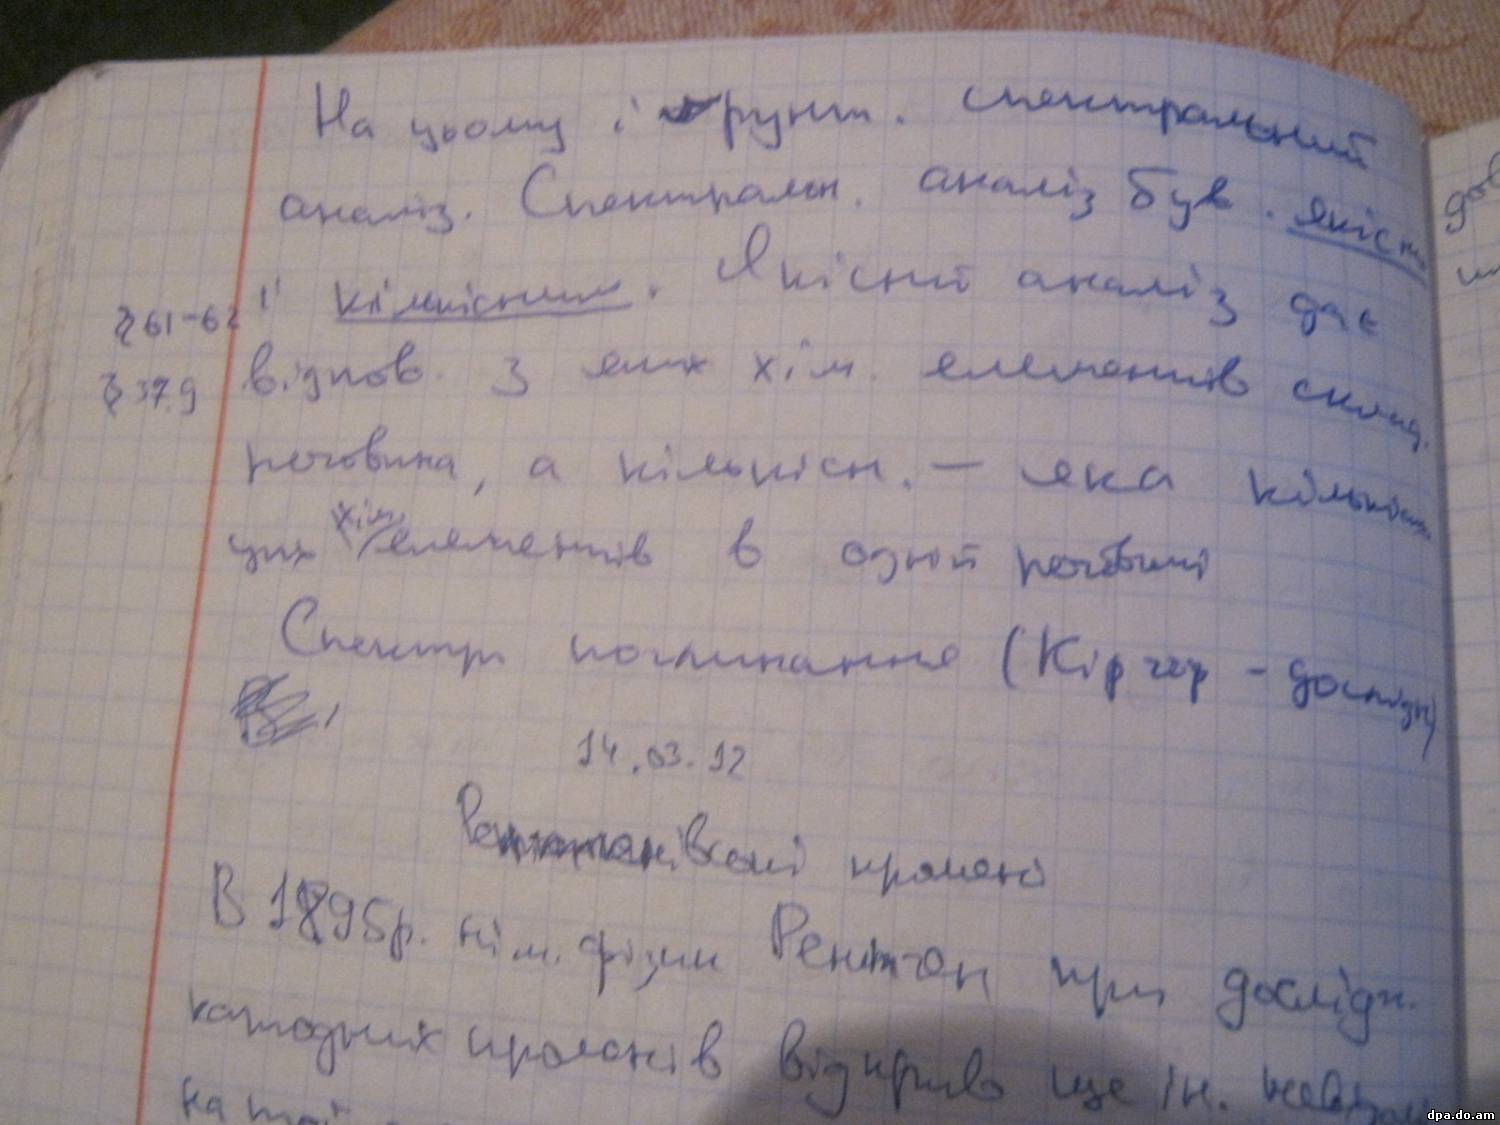 На цьому і ґрунт. спектральний
аналіз. Спектральн. аналіз був. якісн
і кількісним. Якісний аналіз дає
§ 61-62
відпов. з яких хім. елементів склад.
§ 37.9
речовина, а кількісн. – яка кількість
цих хім. елементів в одній речовині
Спектр поглинання (Кірхгр - дослідн)
14.03.12
Рентгенівські промені
В 1895р. нім. фізик Рентген при дослідж.
катодних променів відкрив ще ін. невідомі
на той
дов
dpa.do.am